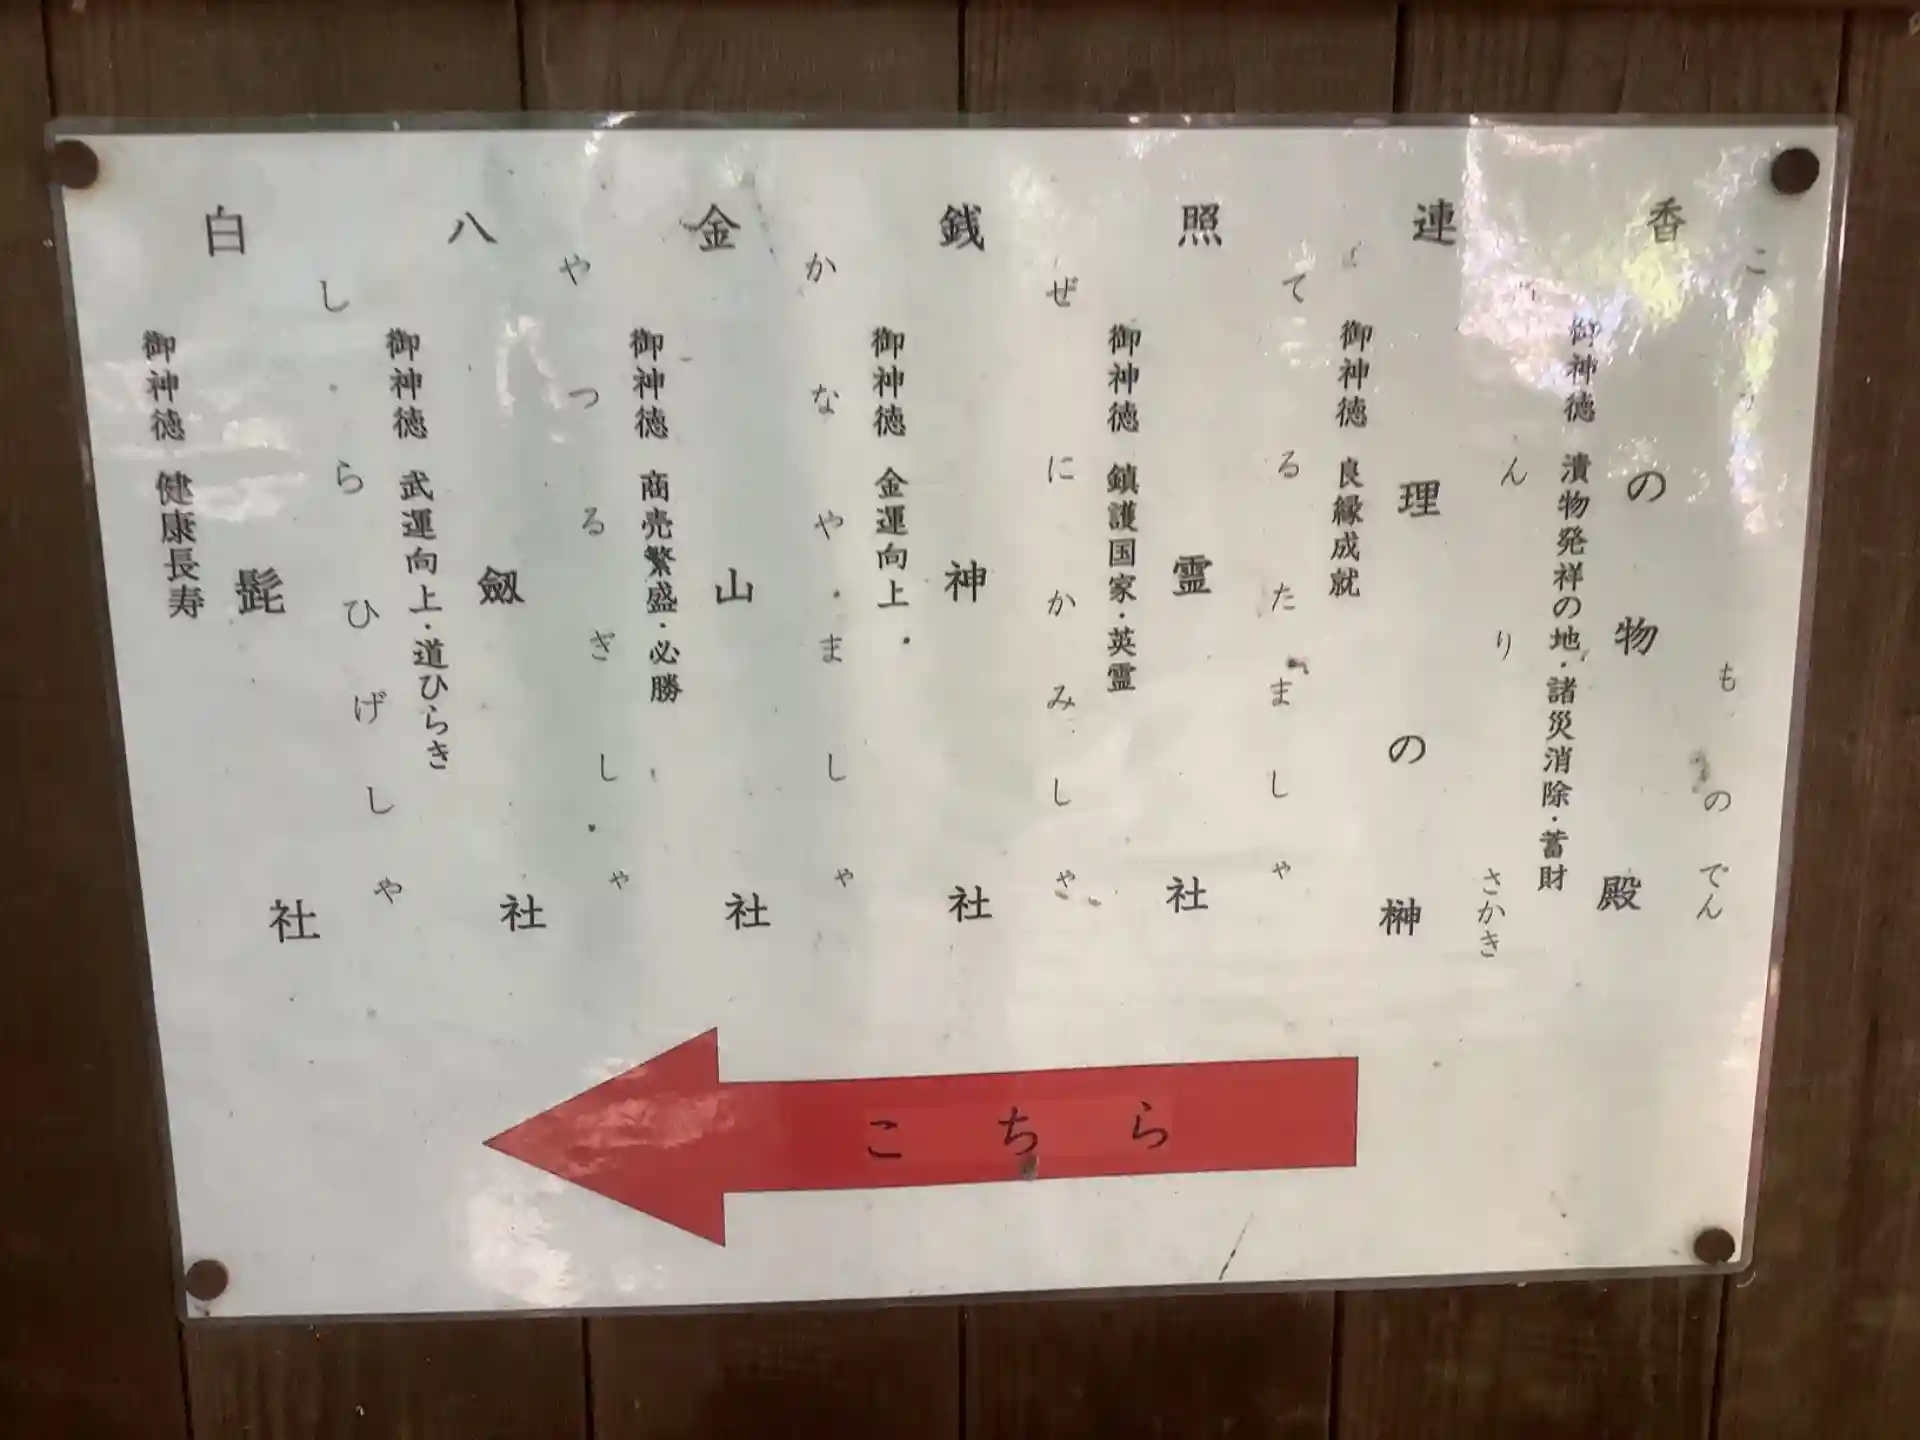 香の物殿
こ
ものでん
御神徳 漬物発祥の地・諸災消除・蓄財
連理の榊
んりさかき
御神徳 良縁成就
照霊社
てるたましゃ
御神徳 鎮護国家・英霊
銭神社
ぜにかみしゃ
御神徳 金運向上
金山社
かなやましゃ
御神徳 商売繁盛・必勝
八剱社
やつるぎしゃ
御神徳 武運向上・道ひらき
白髭社
しらひげしゃ
御神徳 健康長寿
こちら